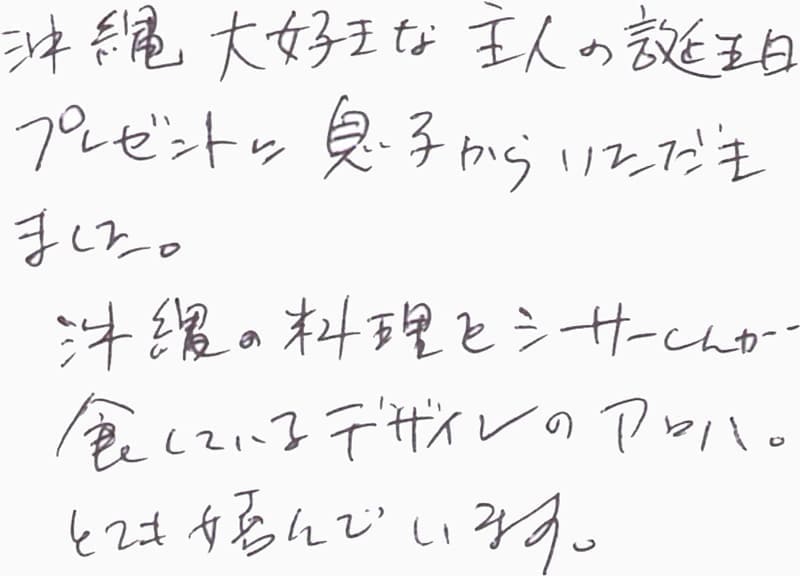 沖縄大好きな主人の誕生日
プレゼントに息子からいただき
ました。
沖縄の料理をシサーくんが
食しているデザインのアロハ。
とても嬉んでいます。